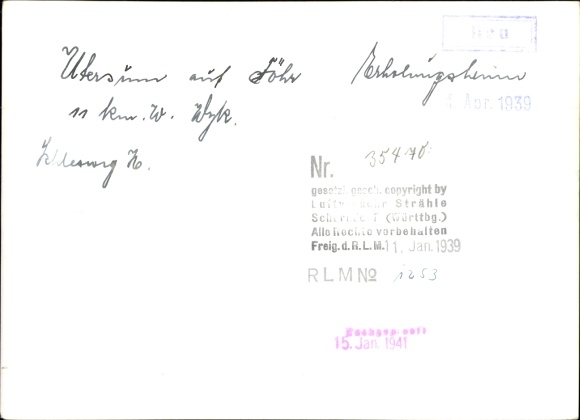 Utersum auf Föhr Erholungsheim
11 km. W. Wyk.
Schleswig H.
Apr. 1939
Nr. 35470
gesetzl. gesch. copyright by
Strähle
(Württbg.)
Alle Rechte vorbehalten
Freig. d. R.L.M. 11. Jan. 1939
RLM No 1253
15. Jan. 1941